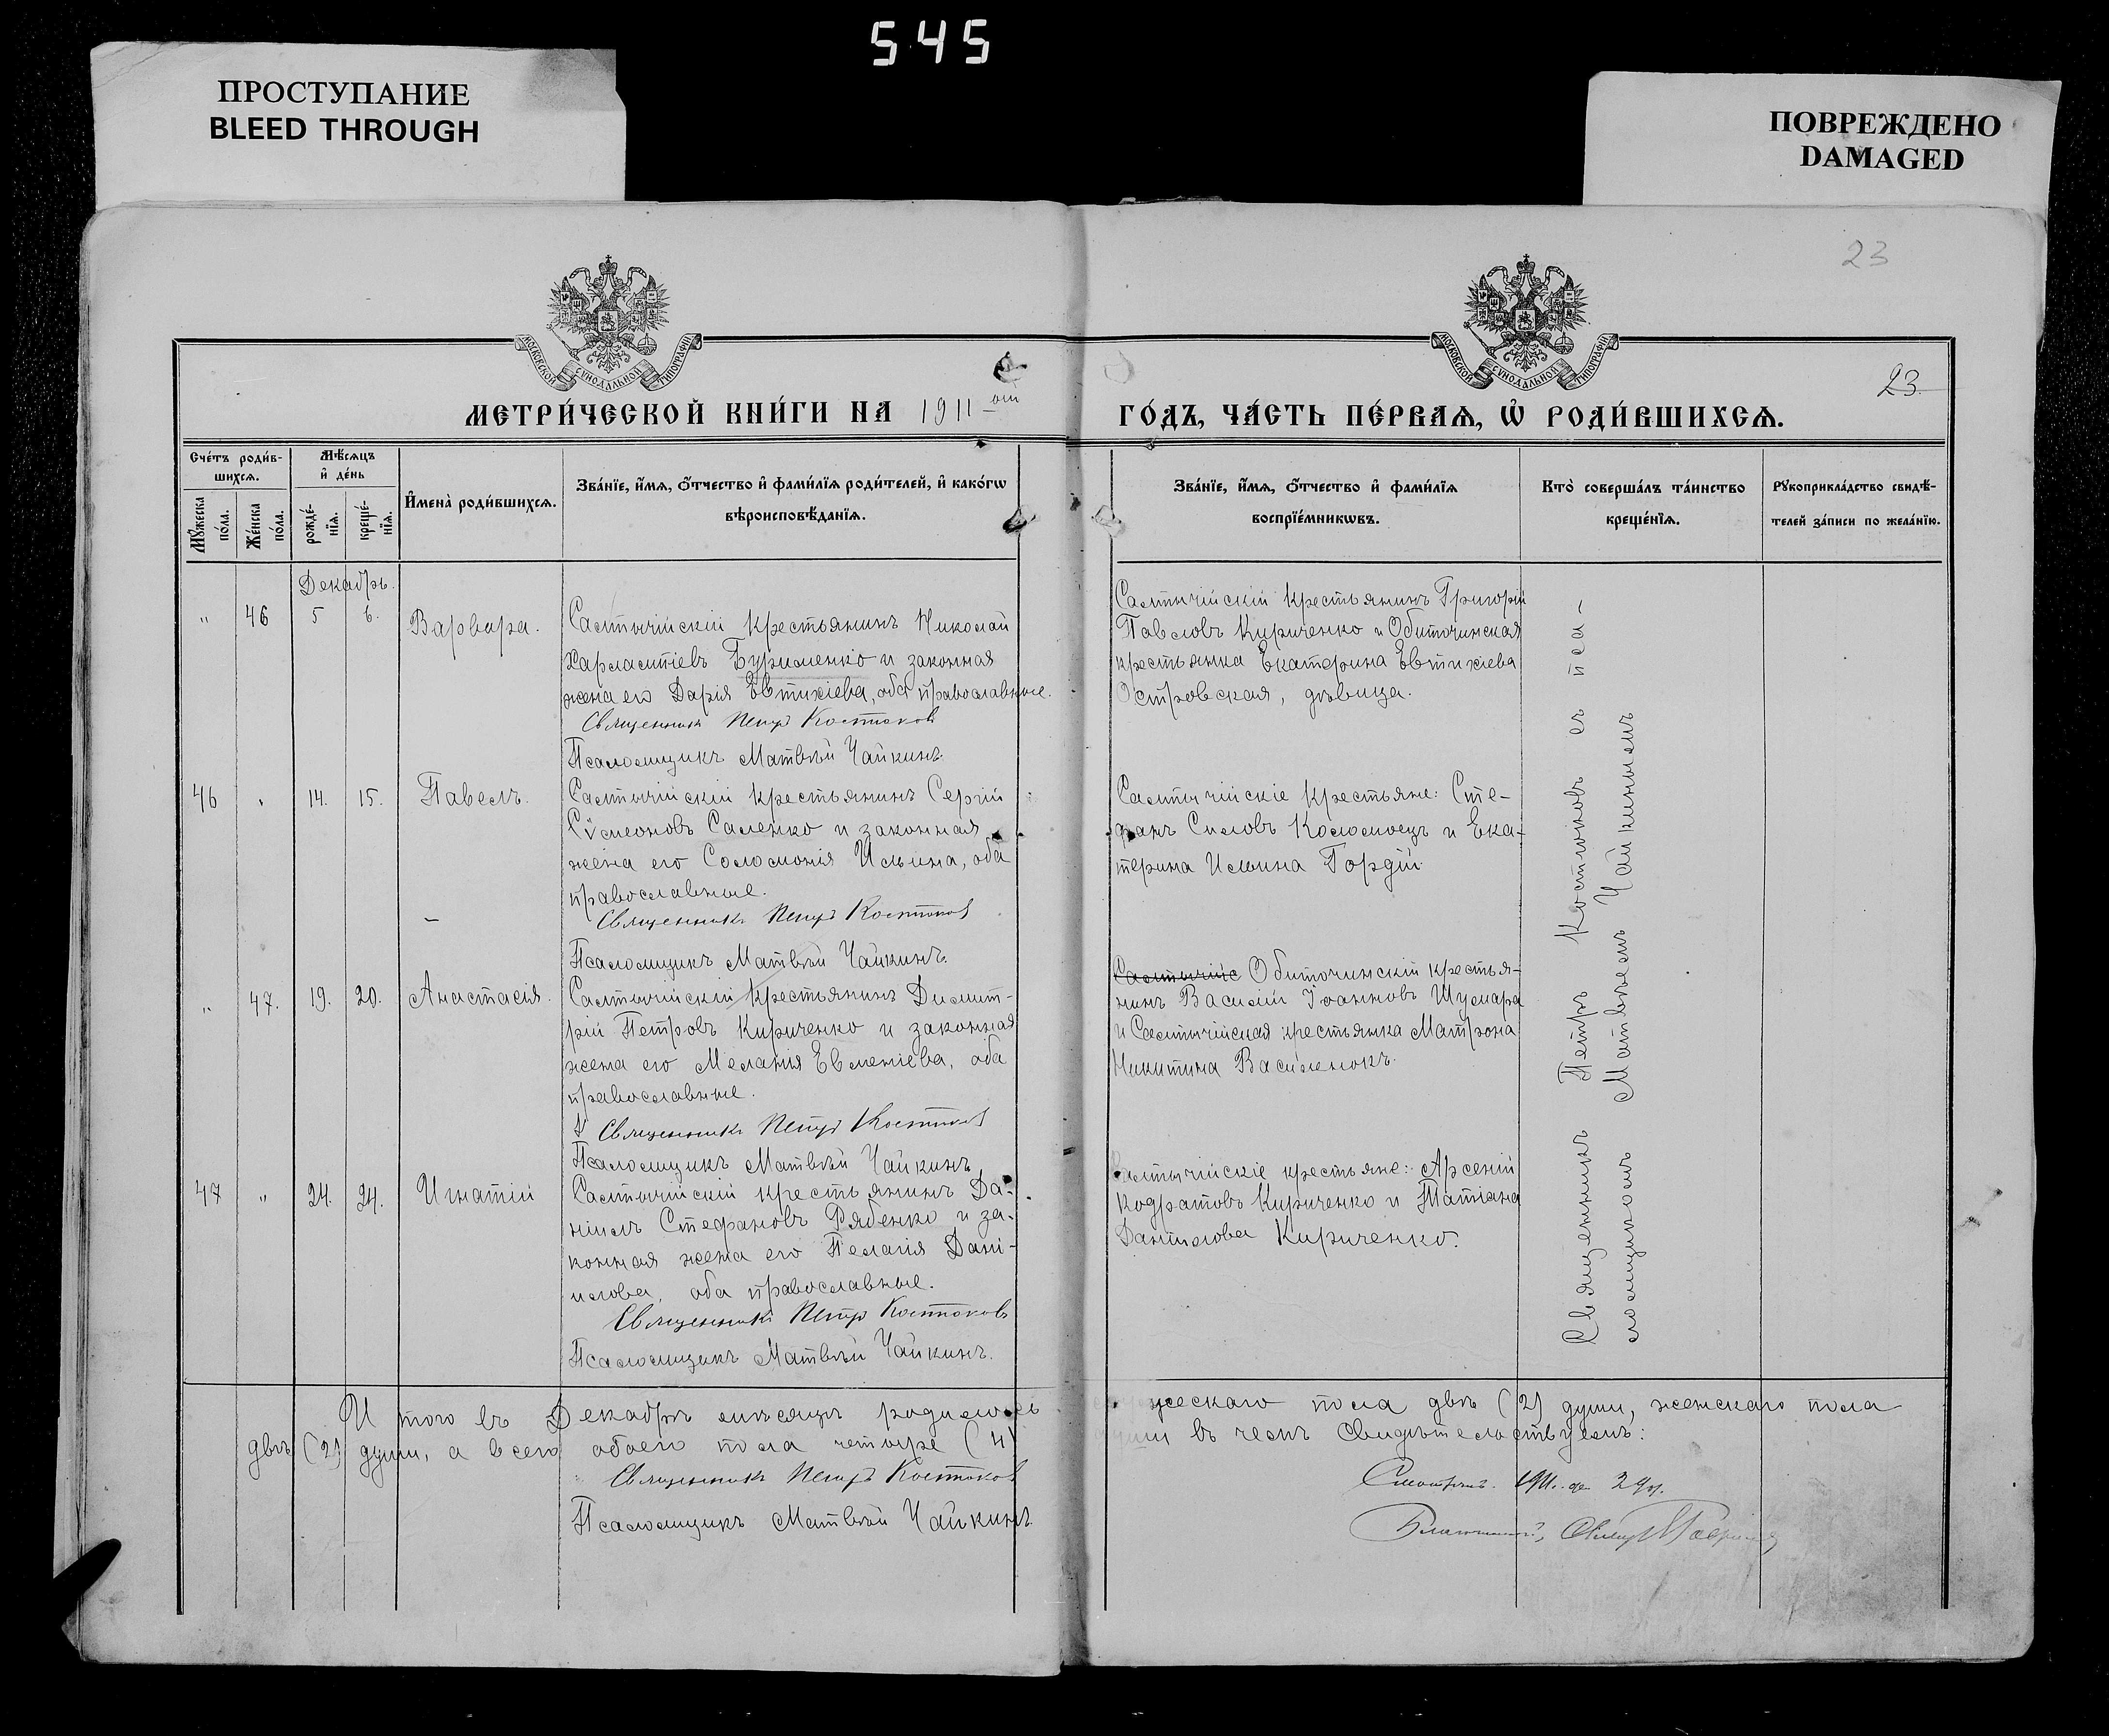 545
ПРОСТУПАНИЕ
BLEED THROUGH
ПОВРЕЖДЕНО
DAMAGED
23
МОСКОВСКОЙ СѴНОДАЛЬНОЙ ТИПОГРАФІИ
МОСКОВСКОЙ СѴНОДАЛЬНОЙ ТИПОГРАФІИ
23
МЕТРИ́ЧЕСКОЙ КНИ́ГИ НА 1911-ый
ГО́ДЪ, ЧА́СТЬ ПЕ́РВАѦ, Ѽ РОДИ́ВШИХСѦ.
Сче́тъ роди́в-
шихсѧ.
Мѣ́сѧцъ
и҆ де́нь
Мꙋ́жеска
по́ла.
Же́нска
по́ла.
рожде́-
нїѧ.
креще́-
нїѧ.
И҆мена̀ роди́вшихсѧ.
Зва́нїе, и҆́мѧ, ѻ҆́тчество и҆ фами́лїѧ роди́телей, и҆ како́гѡ
вѣроисповѣ́данїѧ.
Зва́нїе, и҆́мѧ, ѻ҆́тчество и҆ фами́лїѧ
воспрїе́мникѡвъ.
Кто̀ соверша́лъ та́инство
креще́нїѧ.
Рꙋкоприкла́дство свидѣ́-
телей за́писи по жела́нїю.
Декабрь.
" 46 5 6. Варвара.
Салтычійскій крестьянинъ Николай
Харлампіевъ Бурименко и законная
жена его Дарія Евтихіева, оба православные.
Священникъ Петръ Костюковъ
Псаломщикъ Матвѣй Чайкинъ.
Салтычійскій крестьянинъ Григорій
Павловъ Кириченко и Обиточинская
крестьянка Екатерина Евтихіева
Островская, дѣвица.
46 " 14. 15. Павелъ.
Салтычійскій крестьянинъ Сергій
Сѵмеоновъ Саленко и законная
жена его Соломонія Ильина, оба
православные.
Священникъ Петръ Костюковъ
Псаломщикъ Матвѣй Чайкинъ.
Салтычійскіе крестьяне: Сте-
фанъ Силовъ Коломоецъ и Ека-
терина Ильина Гордій.
" 47. 19. 20. Анастасія.
Салтычійскій крестьянинъ Димит-
рій Петровъ Кириченко и законная
жена его Меланія Евменіева, оба
православные.
Священникъ Петръ Костюковъ
Псаломщикъ Матвѣй Чайкинъ
Салтычійс Обиточинскій крестья-
нинъ Василій Іоанновъ Шумара
и Салтычійская крестьянка Матрона
Никитина Василенокъ.
47 " 24. 24. Игнатій
Салтычійскій крестьянинъ Да-
ніилъ Стефановъ Рябенко и за-
конная жена его Пелагія Дани-
илова, оба православные.
Священникъ Петръ Костюковъ
Псаломщикъ Матвѣй Чайкинъ.
Салтычійскіе крестьяне: Арсеній
Кодратовъ Кириченко и Татіана
Даніилова Кириченко.
Священникъ Петръ Костюковъ съ пса-
ломщикомъ Матвѣемъ Чайкинымъ
И того въ Декабрѣ мѣсяцѣ родилось мужескаго пола двѣ (2) души, женскаго пола
двѣ (2) души, а всего обоего пола четыре (4) души въ чемъ свидѣтельствуемъ:
Священникъ Петръ Костюковъ
Псаломщикъ Матвѣй Чайкинъ
Смотрѣлъ.
Благочинный,